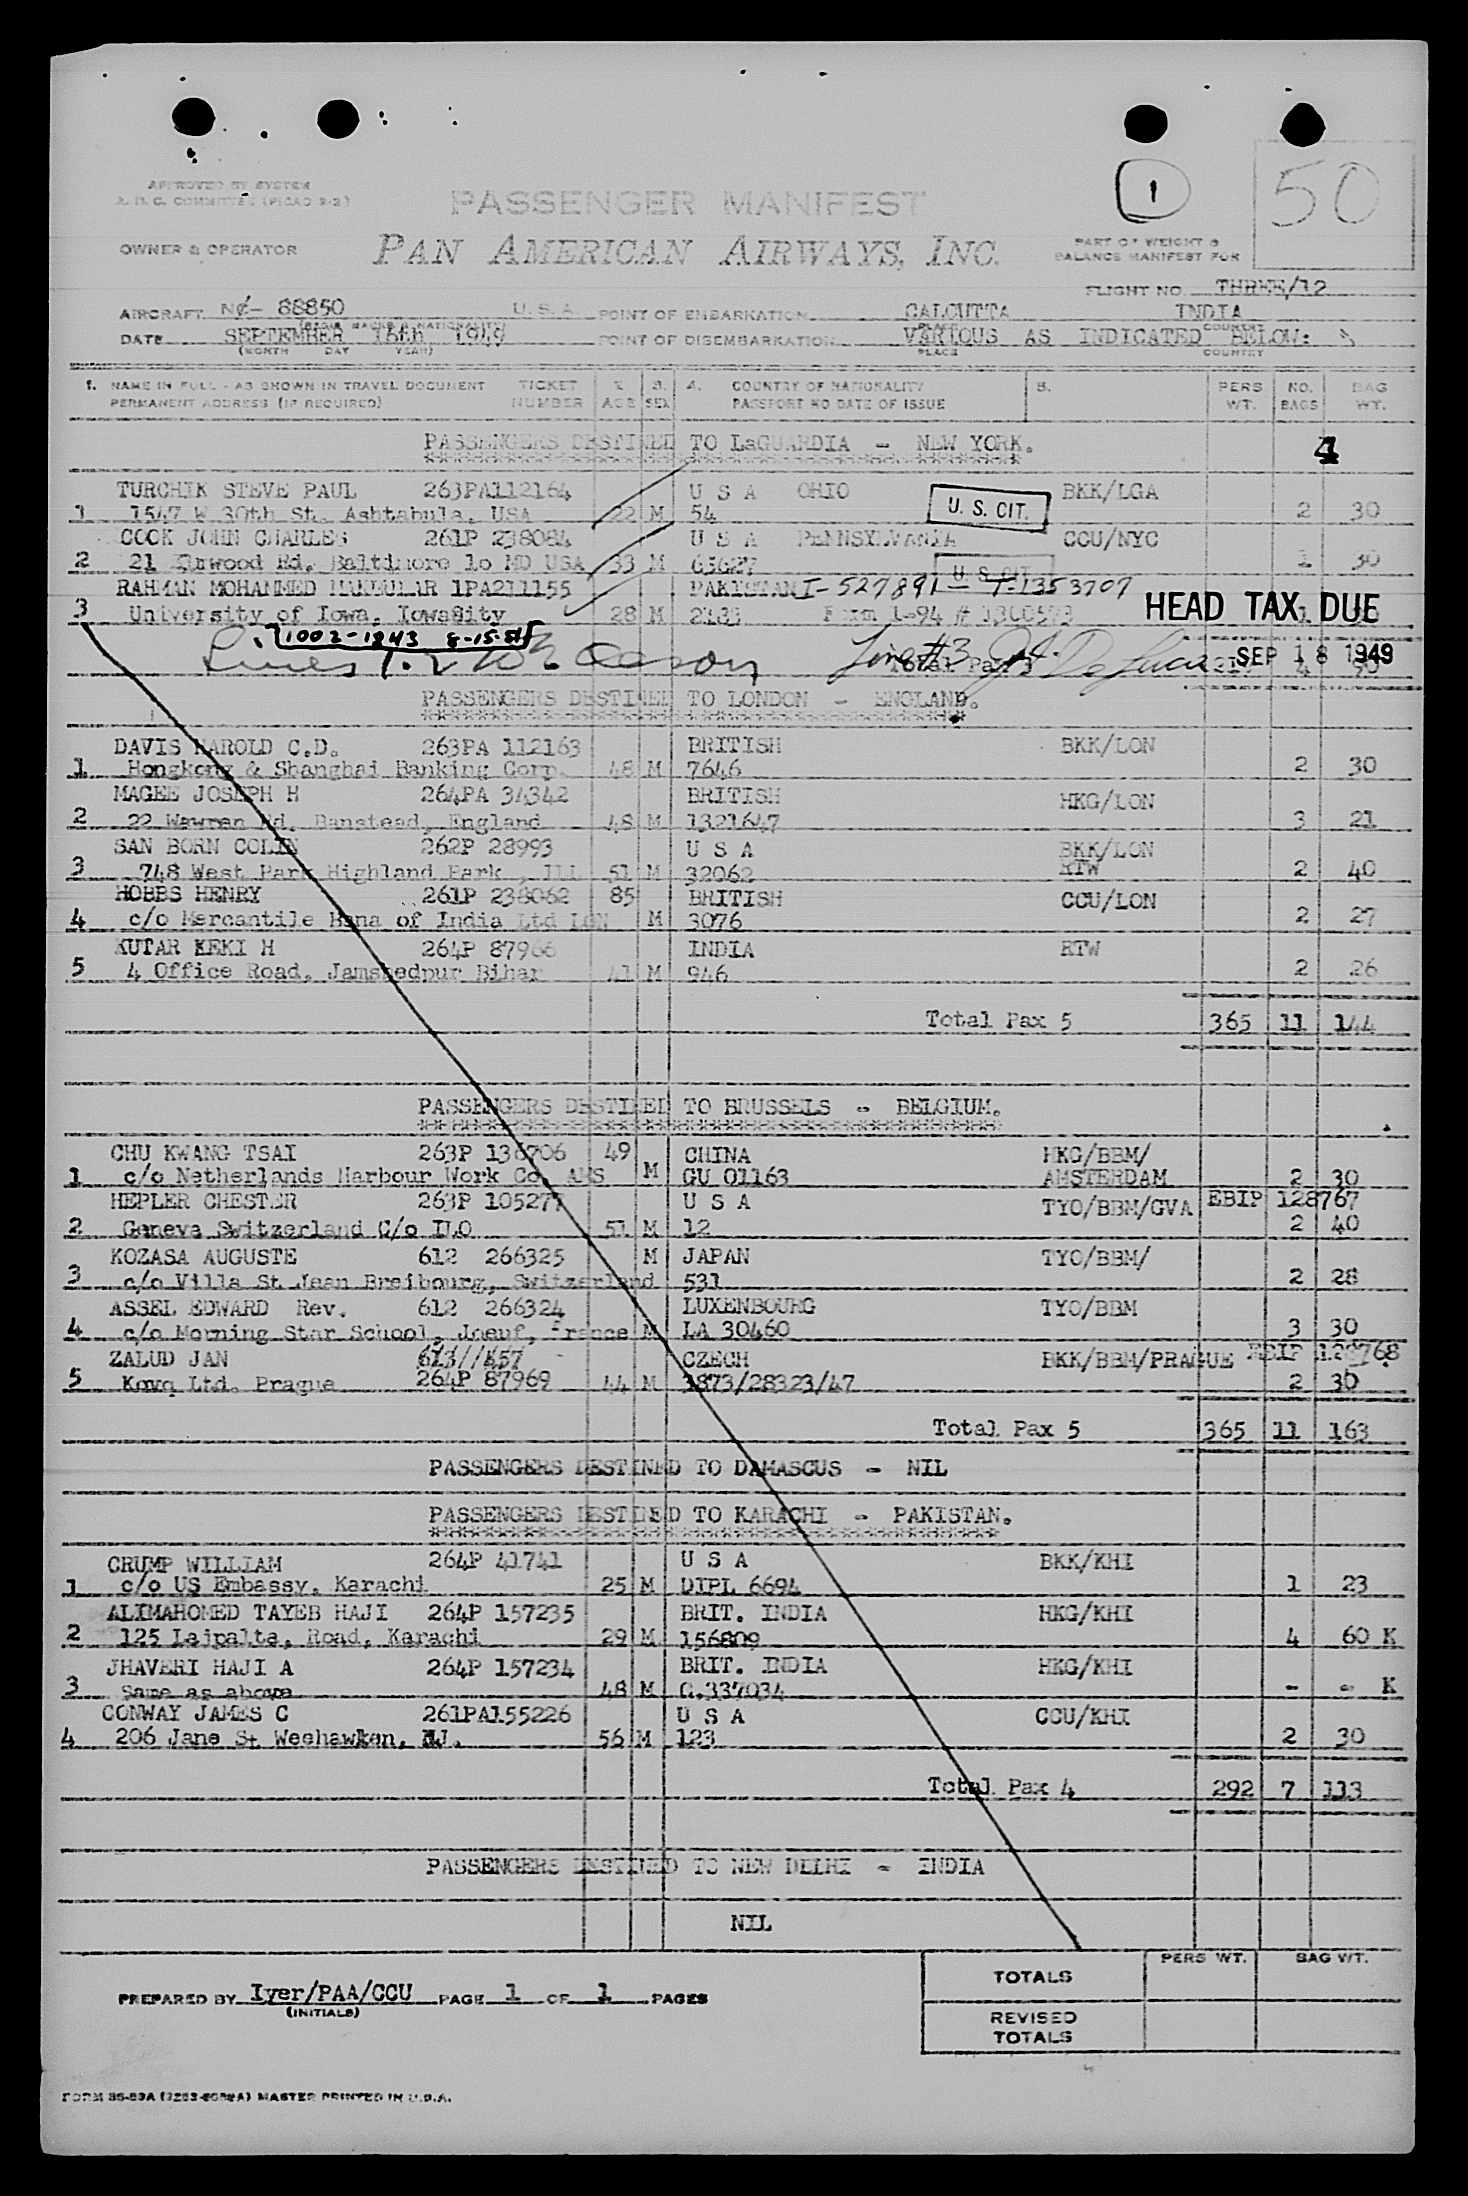 1
50
APPROVED BY SYSTEM
A. D. C. COMMITTEE (PICAO 9-2)
PASSENGER MANIFEST
OWNER & OPERATOR
PAN AMERICAN AIRWAYS, INC.
PART OF WEIGHT &
BALANCE MANIFEST FOR
FLIGHT NO. THREE/12
AIRCRAFT 88850 U.S.A. POINT OF EMBARKATION CALCUTTA INDIA
DATE SEPTEMBER 16th 1949 POINT OF DISEMBARKATION VARIOUS AS INDICATED BELOW:
(MONTH DAY YEAR) PLACE COUNTRY
1. NAME IN FULL - AS SHOWN IN TRAVEL DOCUMENT TICKET 2. 3. 4. COUNTRY OF NATIONALITY 5. PERS NO. BAG
PERMANENT ADDRESS (IF REQUIRED) NUMBER AGE SEX PASSPORT NO DATE OF ISSUE WT. BAGS WT.
PASSENGERS DESTINED TO LaGUARDIA - NEW YORK. 4
TURCHIK STEVE PAUL 263PA112164 U S A OHIO U. S. CIT. BKK/LGA
1 1547 W 30th St. Ashtabula, USA 22 M 54 2 30
COOK JOHN CHARLES 261P 238084 U S A PENNSYLVANIA CCU/NYC
2 21 Elmwood Rd. Baltimore 10 MD USA 33 M 65627 U. S. CIT. 1 30
RAHMAN MOHAMMED 1PA211155 PAKISTAN I-527891 - T-1353707
3 University of Iowa, Iowa City 28 M Form I-94 # HEAD TAX DUE
1002-1843 8-15-51
Lines 1.2 Line #3 Total Pax 3 SEP 18 1949 4 90
PASSENGERS DESTINED TO LONDON - ENGLAND.
DAVIS HAROLD C.D. 263PA 112163 BRITISH BKK/LON
1 Hongkong & Shanghai Banking Corp. 48 M 7646 2 30
MAGEE JOSEPH H 264PA 34342 BRITISH HKG/LON
2 22 Wawren Rd. Banstead, England 48 M 1321647 3 21
SAN BORN COLIN 262P 28993 U S A BKK/LON
3 748 West Park Highland Park, Ill 51 M 32062 RTW 2 40
HOBBS HENRY 261P 238062 85 BRITISH CCU/LON
4 c/o Mercantile Bana of India Ltd LON M 3076 2 27
KUTAR KEKI H 264P 87966 INDIA RTW
5 4 Office Road, Jamshedpur Bihar 41 M 946 2 26
Total Pax 5 365 11 144
PASSENGERS DESTINED TO BRUSSELS - BELGIUM.
CHU KWANG TSAI 263P 136706 49 CHINA HKG/BBM/
1 c/o Netherlands Harbour Work Co. AMS M GU 01163 AMSTERDAM 2 30
HEPLER CHESTER 263P 105277 U S A TYO/BBM/GVA EBIP 128767
2 Geneva Switzerland C/o ILO 51 M 12 2 40
KOZASA AUGUSTE 612 266325 M JAPAN TYO/BBM/
3 c/o Villa St Jean Breibourg, Switzerland 531 2 28
ASSEL EDWARD Rev. 612 266324 LUXENBOURG TYO/BBM
4 c/o Morning Star School, Joeuf, France M LA 30460 3 30
ZALUD JAN CZECH BKK/BBM/PRAGUE EBIP 128768
5 Kovo Ltd. Prague 264P 87969 44 M 1873/28323/47 2 30
Total Pax 5 365 11 163
PASSENGERS DESTINED TO DAMASCUS - NIL
PASSENGERS DESTINED TO KARACHI - PAKISTAN.
CRUMP WILLIAM 264P 41741 U S A BKK/KHI
1 c/o US Embassy. Karachi 25 M DIPL 6694 1 23
ALIMAHOMED TAYEB HAJI 264P 157235 BRIT. INDIA HKG/KHI
2 125 Lajpalta, Road, Karachi 29 M 156809 4 60 K
JHAVERI HAJI A 264P 157234 BRIT. INDIA HKG/KHI
3 Same as above 48 M C.337034 - - K
CONWAY JAMES C 261PA155226 U S A CCU/KHI
4 206 Jane St Weehawken, NJ. 56 M 123 2 30
Total Pax 4 292 7 113
PASSENGERS DESTINED TO NEW DELHI - INDIA
NIL
PREPARED BY Iyer/PAA/CCU PAGE 1 OF 1 PAGES
(INITIALS)
PERS WT. BAG WT.
TOTALS
REVISED
TOTALS
MASTER PRINTED IN U.S.A.